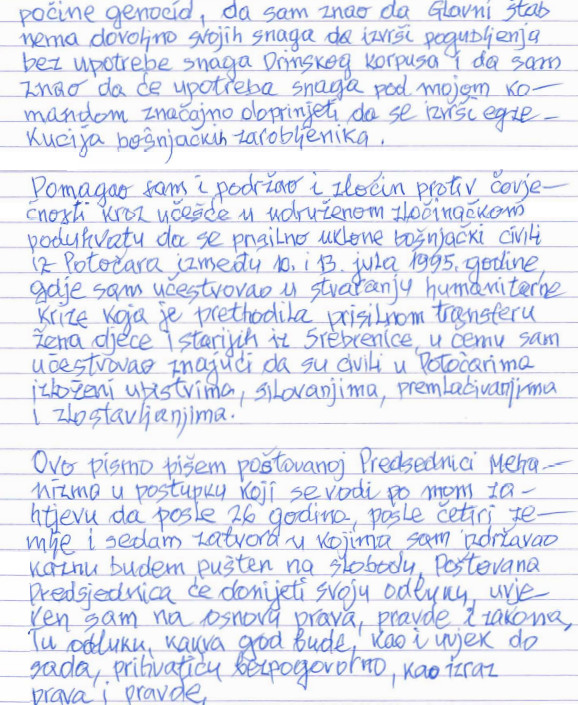 počine genocid, da sam znao da Glavni štab
nema dovoljno svojih snaga da izvrši pogubljenja
bez upotrebe snaga Drinskog korpusa i da sam
znao da će upotreba snaga pod mojom ko-
mandom značajno doprinjeti da se izvrši egze-
kucija bošnjačkih zarobljenika.
Pomagao sam i podržao i zločin protiv čovje-
čnosti kroz učešće u udruženom zločinačkom
poduhvatu da se prisilno uklone bošnjački civili
iz Potočara između 10. i 13. jula 1995. godine,
gdje sam učestvovao u stvaranju humanitarne
krize koja je prethodila prisilnom transferu
žena djece i starijih iz Srebrenice, u čemu sam
učestvovao znajući da su civili u Potočarima
izloženi ubistvima, silovanjima, premlaćivanjima
i zlostavljanjima.
Ovo pismo pišem poštovanoj Predsednici Meha-
nizma u postupku koji se vodi po mom za-
htjevu da posle 26 godina, posle četiri ze-
mlje i sedam zatvora u kojima sam izdržavao
kaznu budem pušten na slobodu. Poštovana
Predsjednica će donijeti svoju odluku, uvje-
ren sam na osnovu prava, pravde i zakona,
Tu odluku, kakva god bude, kao i uvjek do
sada, prihvatiću bezpogovorno, kao izraz
prava i pravde,